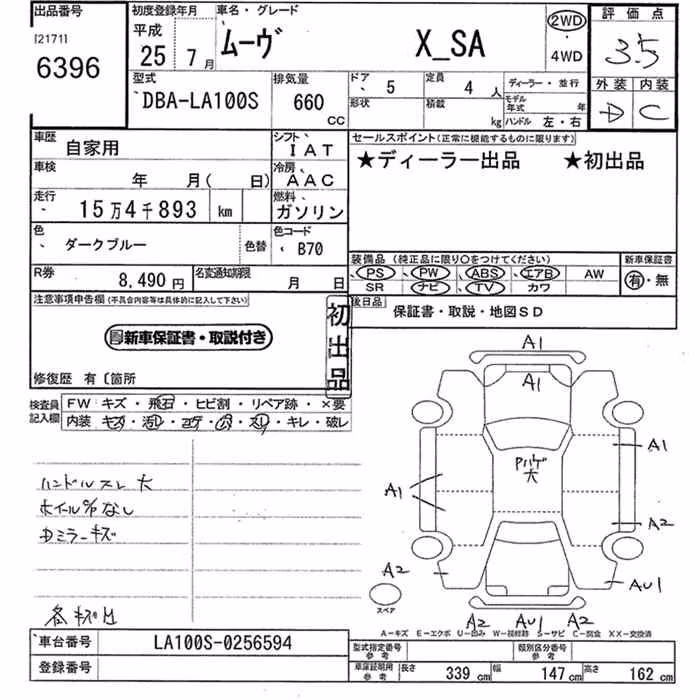 出品番号 初度登録年月 車名・グレード 評価点
[2171] 平成 ムーヴ X_SA 2WD 3.5
6396 25年 7月 4WD
型式 排気量 ドア 5 定員 4人 ディーラー・並行 外装 内装
DBA-LA100S 660cc 形状 積載 kg モデル年式 年 D C
ハンドル 左・右
車歴 自家用 シフト IAT セールスポイント(正常に機能するものに限ります)
車検 年 月( 日) 冷房 AAC ★ディーラー出品 ★初出品
走行 15万4千893 km 燃料 ガソリン
色 ダークブルー 色替 色コード B70
装備品(純正品に限り○をつけてください) 新車保証書
R券 8,490円 名変通知期限 月 日 PS PW ABS エアB AW 有・無
SR ナビ TV カワ
注意事項申告欄(不具合内容等は具体的に記入して下さい) 初出品 後日品 保証書・取説・地図SD
新車保証書・取説付き
修復歴 有〔箇所
検査員記入欄 FW キズ・飛石・ヒビ割・リペア跡・×要
内装
・キレ・破レ
ハンドルスレ 大
Dミラーキズ
A1
A1
A1
A1
A2
A2
AU1
A2 AU1 A2
大
スペア
A-キズ E-エクボ U-凹み W-補修跡 S-サビ C-腐食 XX-交換済
車台番号 LA100S-0256594 型式指定番号 参考 類別区分番号 参考
登録番号 車庫証明用 参考 長さ 339cm 幅 147cm 高さ 162cm